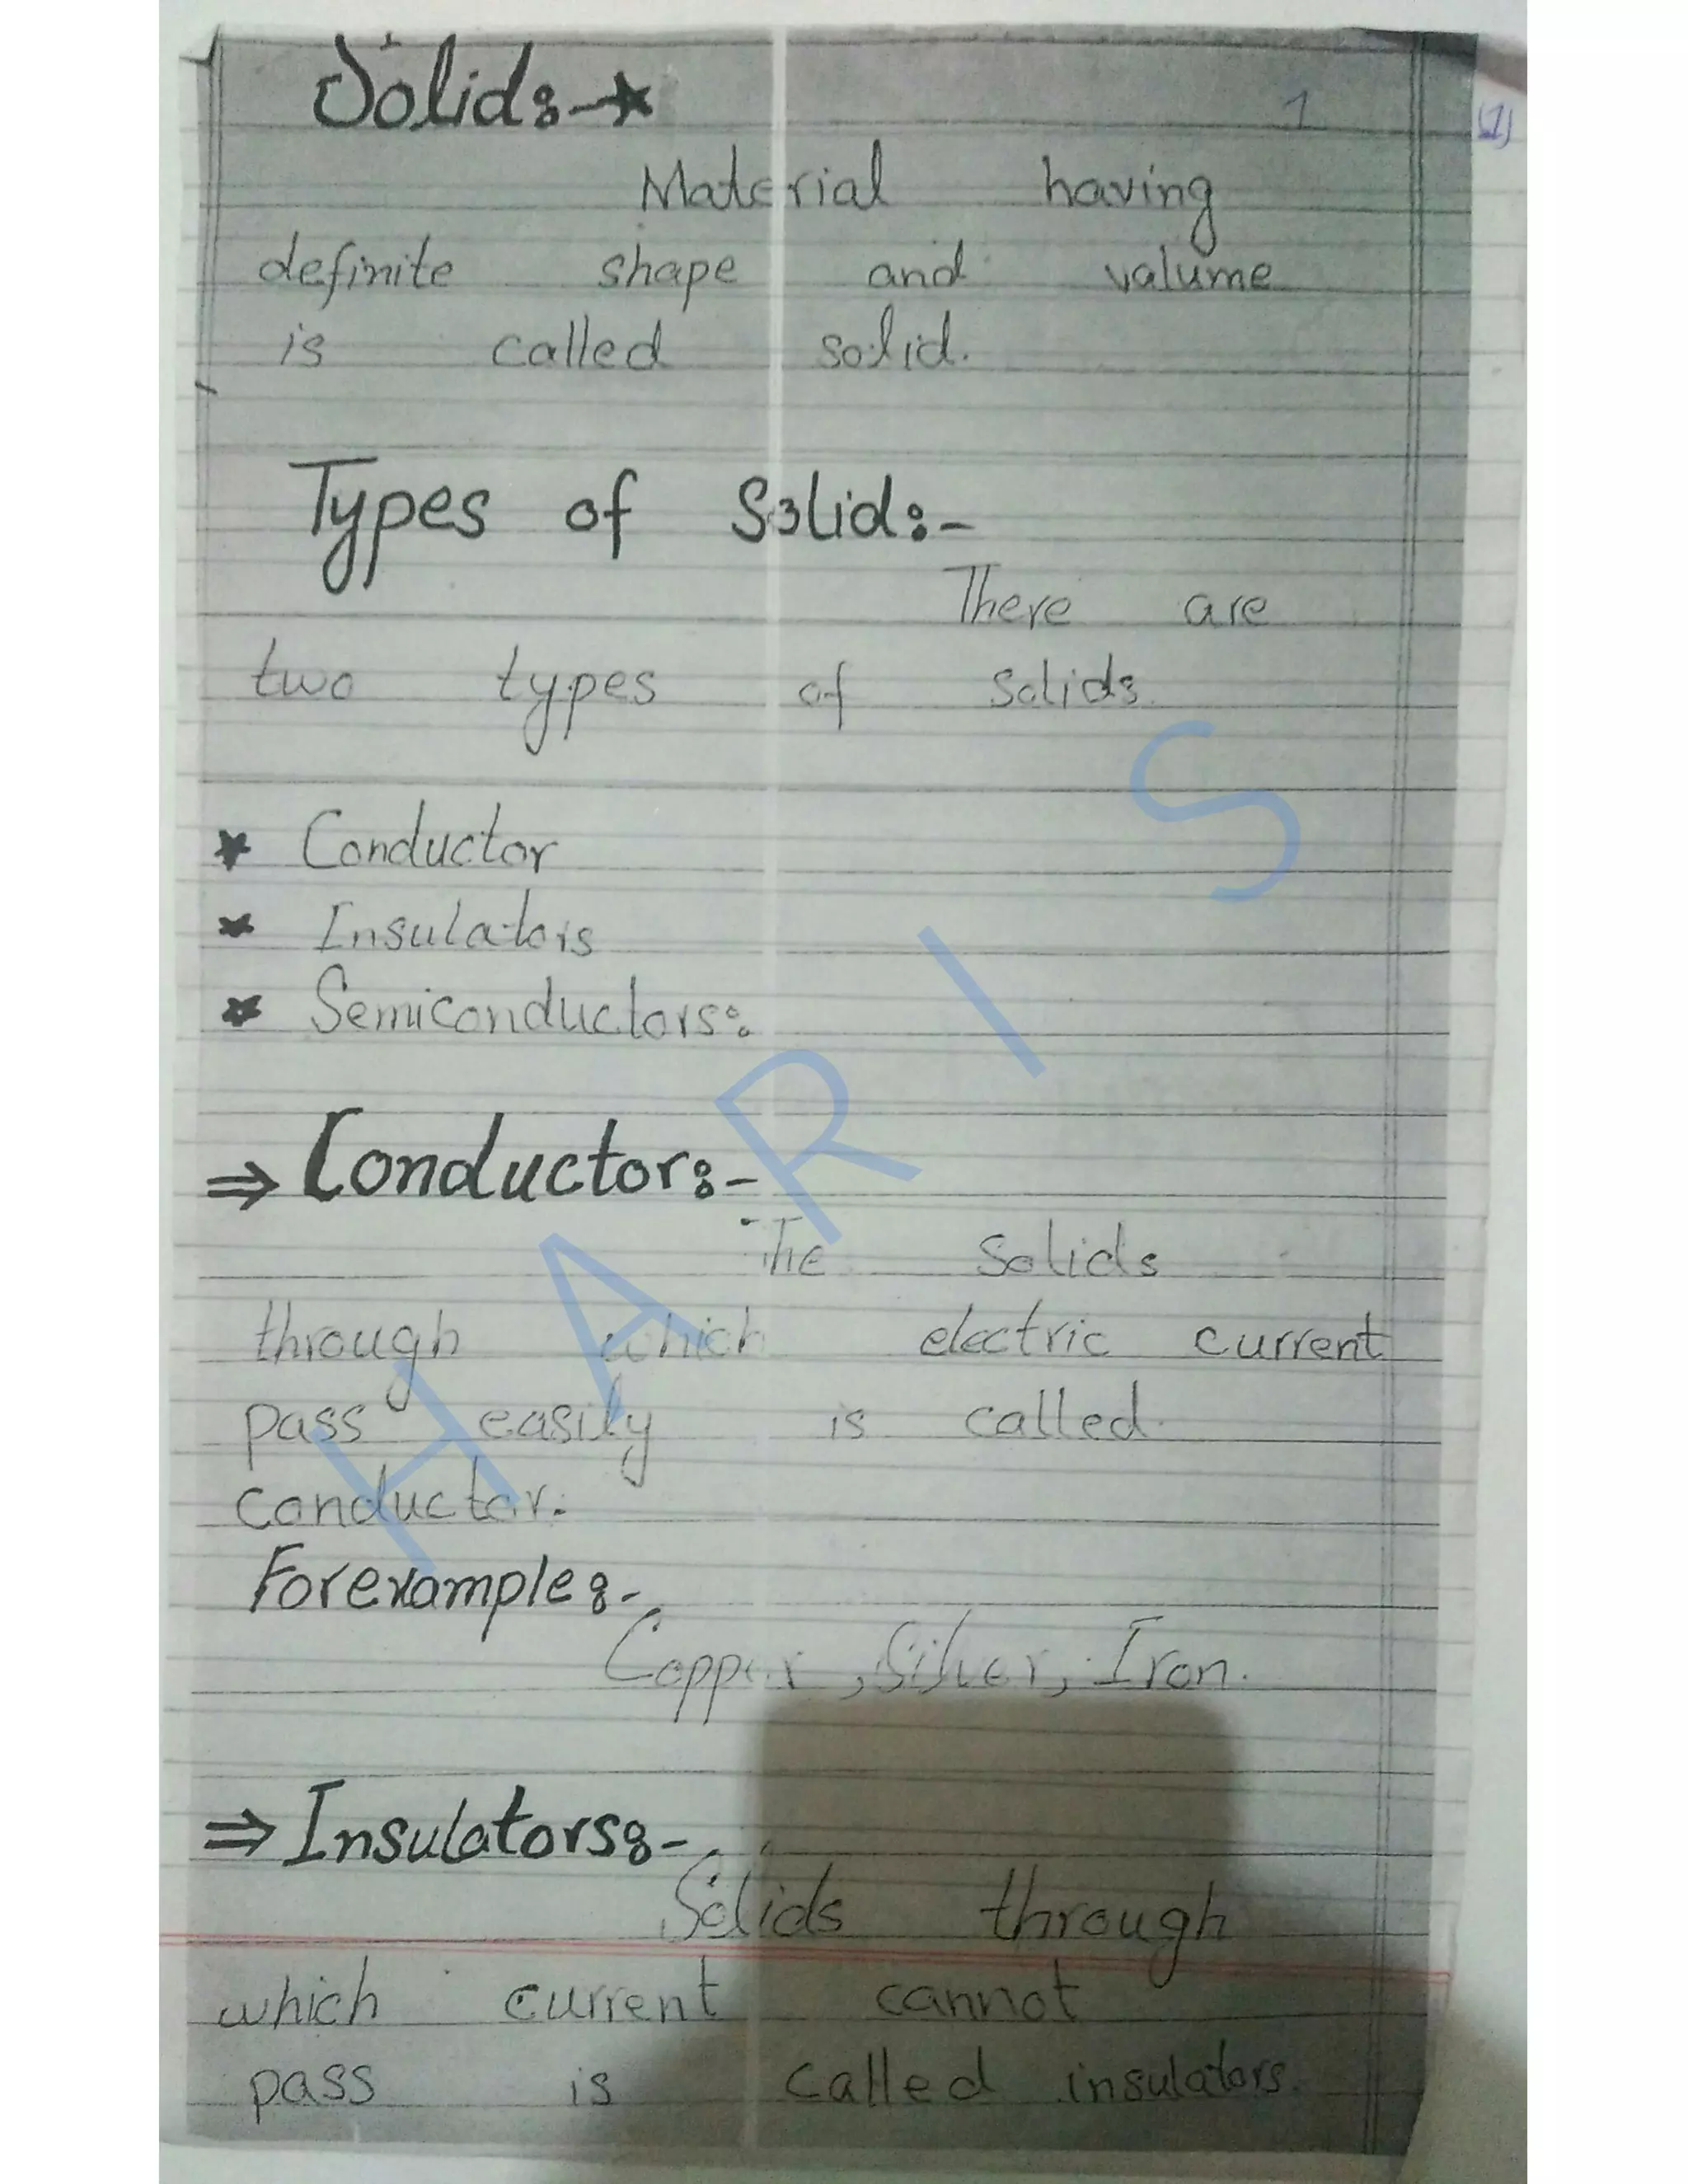 Solid:-★
1
(1)
Material having
definite shape and valume
is called solid.
Types of Solid:-
There are
two types of solids.
★ Conductor
★ Insulators
★ Semiconductors:
⇒ Conductor:-
The Solids
through which electric current
pass easily is called
conductor.
For example:-
Copper, Silver, Iron.
⇒ Insulators:-
Solids through
which current cannot
pass is called insulators.
HARIS